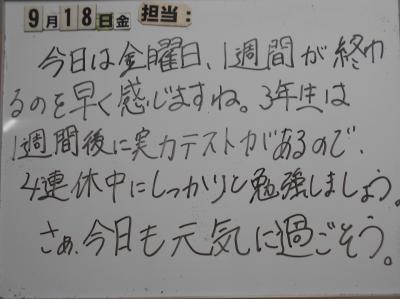 9月18日金 担当:
今日は金曜日、1週間が終わ
るのを早く感じますね。3年生は
1週間後に実力テストがあるので、
4連休中にしっかりと勉強しましょう。
さぁ、今日も元気に過ごそう。